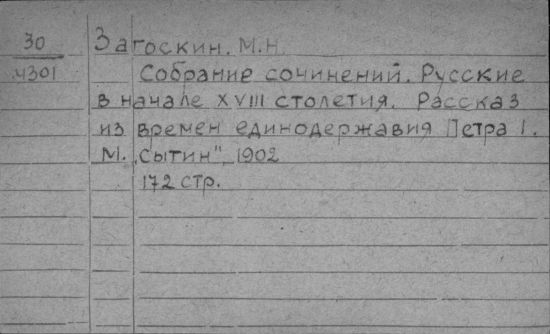 30
4301
Загоскин. М.Н.
Собрание сочинений. Русские
в начале XVIII столетия. Рассказ
из времен единодержавия Петра I.
М. „Сытин" 1902
172 стр.